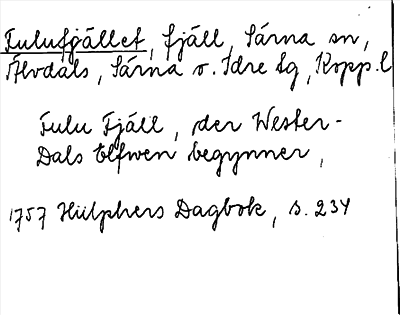 Fulufjället, fjäll, Särna sn,
Älvdals, Särna o. Idre tg, Kopp. l
Fulu Fjäll, der Wester-
Dals Elfwen begynner,
1757 Hülphers Dagbok, s. 234